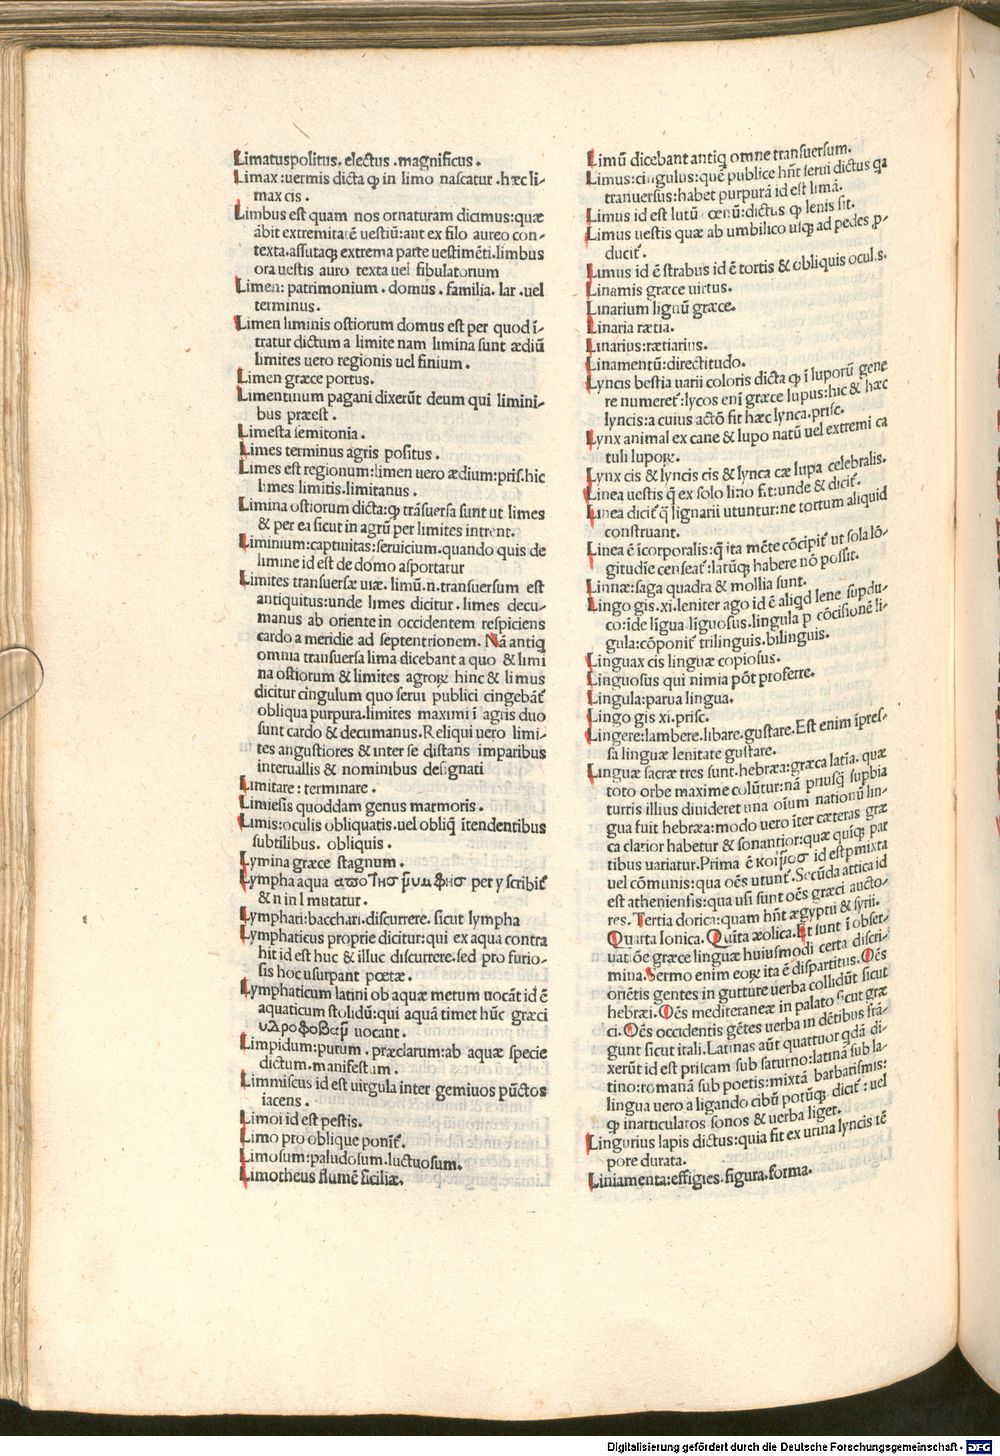 Limatuspolitus. electus .magnificus.
Limax:uermis dicta ꝙ in limo nascatur .hæc li-
max cis.
Limbus est quam nos ornaturam dicimus:quæ
ābit extremitatē uestiū:aut ex filo aureo con-
texta.assutaqꝫ extrema parte uestimēti.limbus
ora uestis auro texta uel fibulatorium
Limen: patrimonium. domus. familia. lar .uel
terminus.
Limen liminis ostiorum domus est per quod ī-
tratur dictum a limite nam limina sunt ædiū
limites uero regionis uel finium.
Limen græce portus.
Limentinum pagani dixerūt deum qui limini-
bus præest.
Limesta semitonia.
Limes terminus agris positus.
Limes est regionum:limen uero ædium:pris.hic
limes limitis.limitanus.
Limina ostiorum dicta:ꝙ trāsuersa sunt ut limes
& per ea sicut in agrū per limites intrent.
Liminium:captiuitas:seruicium.quando quis de
limine id est de domo asportatur
Limites transuersæ uiæ. limū.n.transuersum est
antiquitus:unde limes dicitur. limes decu-
manus ab oriente in occidentem respiciens
cardo a meridie ad septentrionem. Nā antiq
omnia transuersa lima dicebant a quo & limi
na ostiorum & limites agroꝝ hinc & limus
dicitur cingulum quo serui publici cingebāt̄
obliqua purpura.limites maximi ī agris duo
sunt cardo & decumanus.Reliqui uero limi-
tes angustiores & inter se distans imparibus
interuallis & nominibus designati
Limitare: terminare.
Limiesis quoddam genus marmoris.
Limis:oculis obliquatis.uel obliq̄ ītendentibus
subtilibus. obliquis.
Lymina græce stagnum.
Lympha aqua per y scribit̄
& n in l mutatur.
Lymphari:bacchari.discurrere. sicut lympha
Lymphaticus proprie dicitur:qui ex aqua contra
hit id est huc & illuc discurrere.sed pro furio-
sis hoc usurpant poetæ.
Lymphaticum latini ob aquæ metum uocāt id ē
aquaticum stolidū:qui aquā timet hūc græci
υδροφοβαμ̄ uocant.
Limpidum:purum. præclarum:ab aquæ specie
dictum.manifestum.
Limniscus id est uirgula inter gemiuos pūctos
iacens.
Limoi id est pestis.
Limo pro oblique ponit̄.
Limosum:paludosum.luctuosum.
Limotheus flumē siciliæ.
Limū dicebant antiq omne transuersum.
Limus:cingulus:quē publice hn̄t serui dictus qa
tranuersus:habet purpurā id est limā.
Limus id est lutū cœnū:dictus ꝙ lenis sit.
Limus uestis quæ ab umbilico usqꝫ ad pedes ꝓ-
ducit̄.
Limus id ē strabus id ē tortis & obliquis ocul.s.
Linamis græce uirtus.
Linarium lignū græce.
Linaria rætia.
Linarius:rætiarius.
Linamentū:directitudo.
Lyncis bestia uarii coloris dicta ꝙ ī luporū gene
re numeret̄:lycos enī græce lupus:hic & hæc
lyncis:a cuius actō fit hæc lynca.prisc.
Lynx animal ex cane & lupo natū uel extremi ca
tuli lupoꝝ.
Lynx cis & lyncis cis & lynca cæ lupa celebralis.
Linea uestis q̄ ex solo lino fit:unde & dicit̄.
Linea dicit̄ q̄ lignarii utuntur:ne tortum aliquid
construant.
Linea ē īcorporalis:q̄ ita mēte cōcipit̄ ut sola lō-
gitudīe censeat̄:latūqꝫ habere nō possit.
Linnæ:saga quadra & mollia sunt.
Lingo gis.xi.leniter ago id ē aliqd lene supdu-
co:īde līgua līguosus.lingula p cōcisionē li-
gula:cōponit̄ trilinguis.bilinguis.
Linguax cis linguæ copiosus.
Linguosus qui nimia pōt proferre.
Lingula:parua lingua.
Lingo gis xi.prisc.
Lingere:lambere.libare.gustare.Est enim īpres-
sa linguæ lenitate gustare.
Linguæ sacræ tres sunt.hebræa:græca latīa. quæ
toto orbe maxime colūtur:nā priusq̄ supbia
turris illius diuideret una oīum nationū lin-
gua fuit hebræa:modo uero īter cæteras græ
ca clarior habetur & sonantior:quæ quīqꝫ par
tibus uariatur.Prima ē κοιμοσ id est ꝑmixta
uel cōmunis:qua oēs utunt̄.Secūda attica id
est atheniensis:qua usi sunt oēs græci aucto-
res. Tertia dorica:quam hn̄t ægyptii & syrii.
Quarta Ionica. Quīta æolica. Et sunt ī obser-
uatiōe græce linguæ huiusmodi certa discri-
mina.Sermo enim eoꝝ ita ē dispartitus. Oēs
oriētis gentes in gutture uerba collidūt sicut
hebræi. Oēs mediteraneæ in palato sicut græ
ci. Oēs occidentis gētes uerba in dētibus frā-
gunt sicut itali.Latinas aūt quattuor qdā di-
xerūt id est priscam sub saturno:latinā sub la-
tino:romanā sub poetis:mixtā barbarismis:
lingua uero a ligando cibū potūqꝫ dicit̄: uel
ꝙ inarticularos sonos & uerba liget.
Lingurius lapis dictus:quia fit ex urina lyncis tē
pore durata.
Liniamenta:effigies.figura.forma.
Digitalisierung gefördert durch die Deutsche Forschungsgemeinschaft - DFG